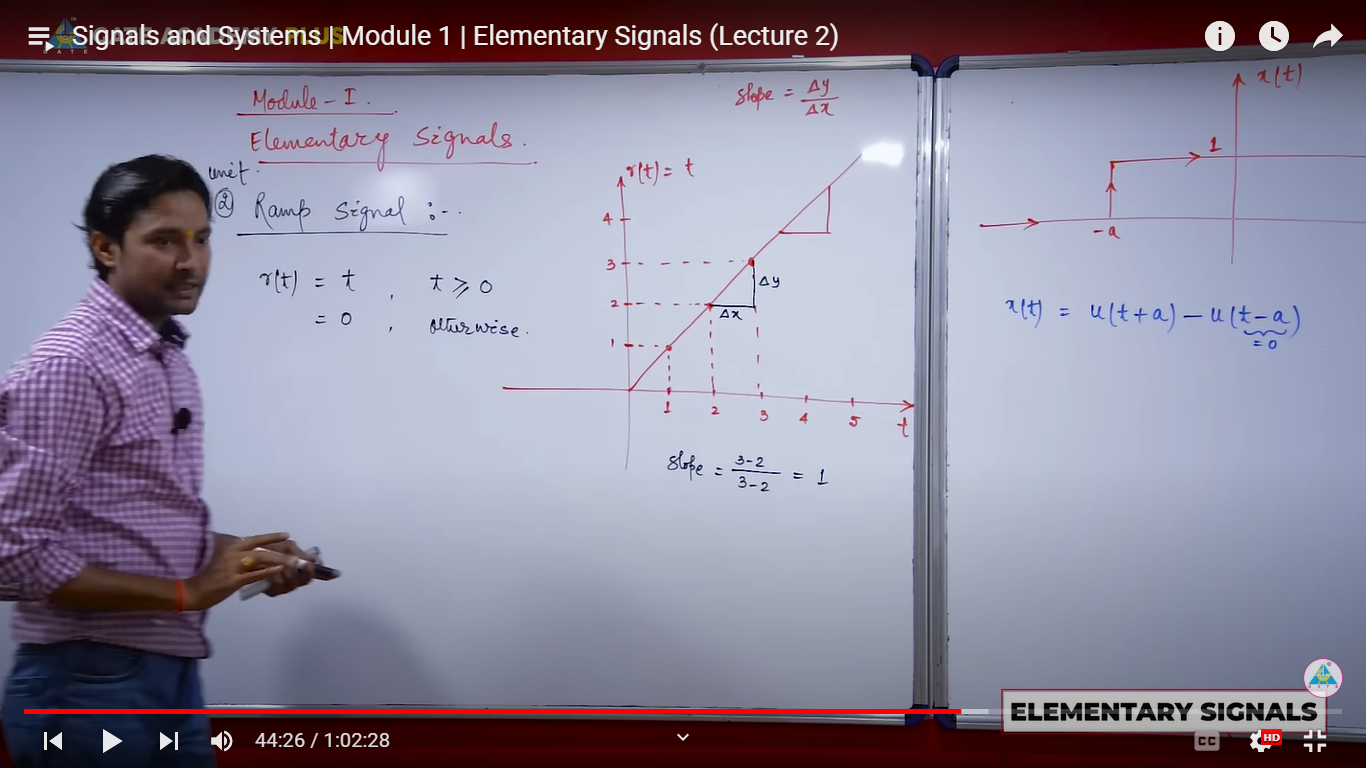 Signals and Systems | Module 1 | Elementary Signals (Lecture 2)
GATE ACADEMY PLUS
GATE
Module - I.
Elementary Signals.
unit.
② Ramp Signal :-.
r(t) = t , t ⩾ 0
= 0 , otherwise.
slope = Δy/Δx
r(t) = t
4
3
2
1
Δy
Δx
1 2 3 4 5
t
slope = 3-2/3-2 = 1
x(t)
1
-a
x(t) = u(t+a) - u(t-a)
= 0
GATE
ELEMENTARY SIGNALS
44:26 / 1:02:28
CC
HD